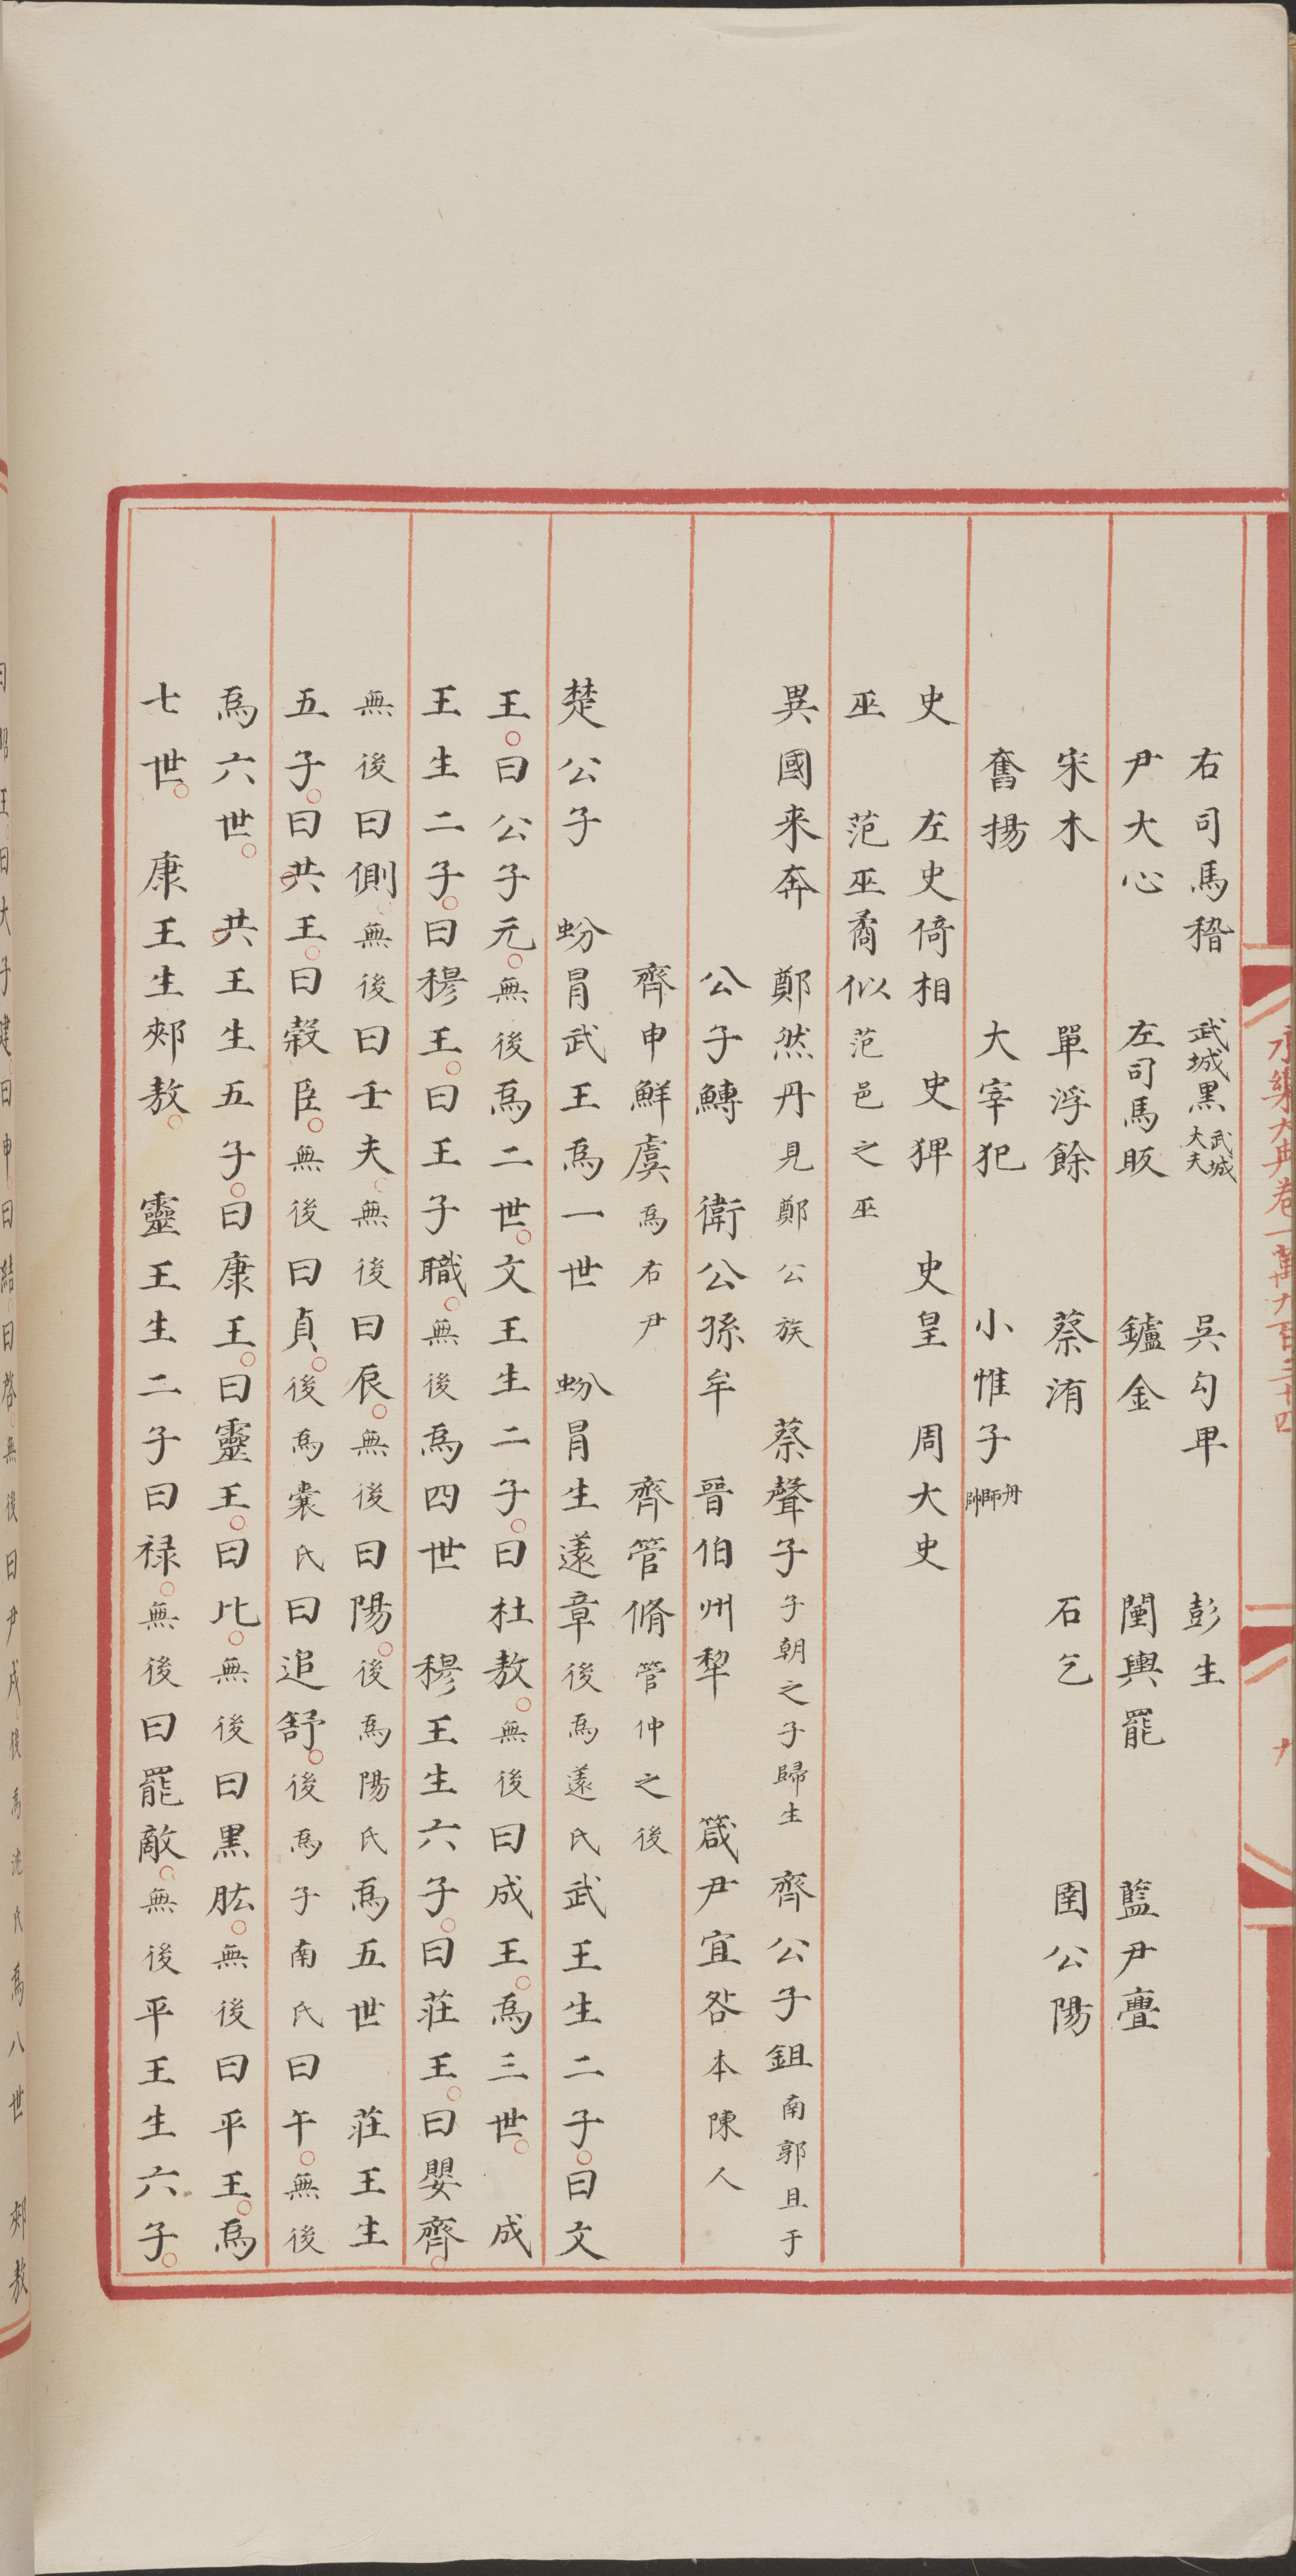 永樂大典卷一萬九百三十四
九
右司馬稽 武城黑武城大夫 吳句卑 彭生
尹大心 左司馬眅 鑪金 闉輿罷 藍尹亹
宋木 單浮餘 蔡洧 石乞 圉公陽
奮揚 大宰犯 小惟子舟師帥
史 左史倚相 史猈 史皇 周大史
巫 范巫矞似范邑之巫
異國来奔 鄭然丹見鄭公族 蔡聲子子朝之子歸生 齊公子鉏南郭且于
公子鱄 衛公孫牟 晉伯州犂 箴尹宜咎本陳人
齊申鮮虞為右尹 齊管脩管仲之後
楚公子 蚡冒武王為一世 蚡冒生薳章後為薳氏武王生二子曰文
王曰公子元無後為二世文王生二子曰杜敖無後曰成王為三世 成
王生二子曰穆王曰王子職無後為四世 穆王生六子曰莊王曰嬰齊
無後曰側無後曰壬夫無後曰辰無後曰陽後為陽氏為五世 莊王生
五子曰共王曰榖臣無後曰貞後為囊氏曰追舒後為子南氏曰午無後
為六世 共王生五子曰康王曰靈王曰比無後曰黑肱無後曰平王為
七世 康王生郟敖 靈王生二子曰禄無後曰罷敵無後平王生六子
曰昭王曰大子建曰申曰結曰啓無後曰尹戌後為沈氏為八世 郟敖